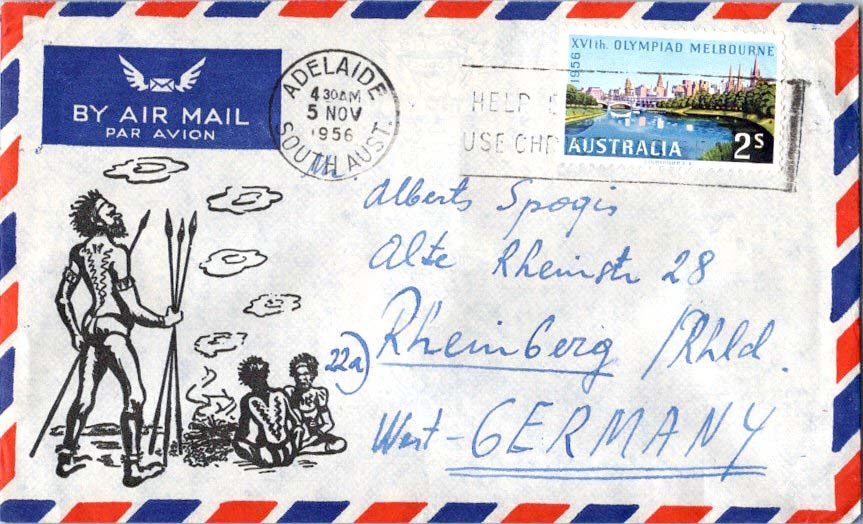 BY AIR MAIL
PAR AVION
ADELAIDE
4 30AM
5 NOV
1956
SOUTH AUST.
HELP
USE
XVIth. OLYMPIAD MELBOURNE
1956
AUSTRALIA 2S
Alberts Spogis
Alte Rheinstr 28
Rheinberg /Rhld.
22a
West-GERMANY